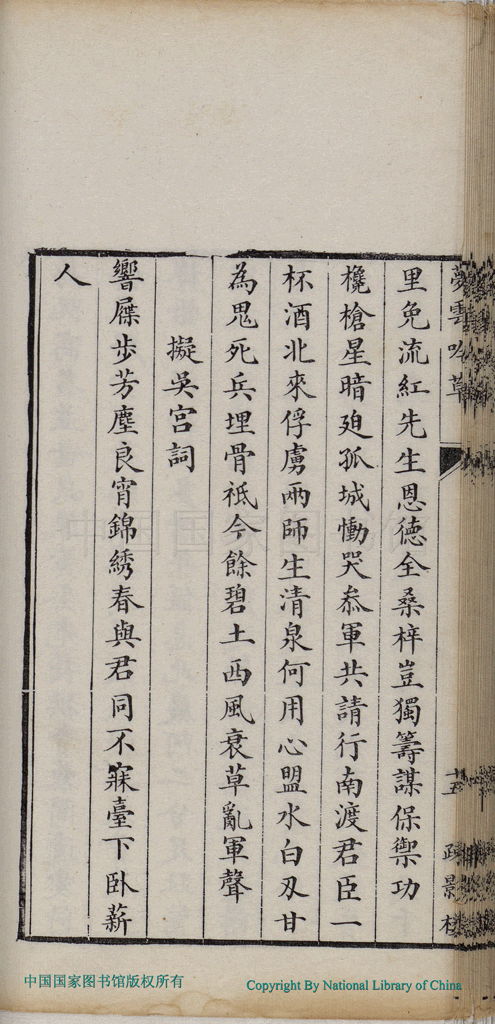 夢雲吟草
十五
里免流紅先生恩德全桑梓豈獨籌謀保禦功
欃槍星暗廹孤城慟哭叅軍共請行南渡君臣一
杯酒北來俘虜兩師生清泉何用心盟水白刄甘
為鬼死兵埋骨祗今餘碧土西風衰草亂軍聲
擬吳宮詞
響屧步芳塵良宵錦綉春與君同不寐臺下臥薪
人
中国国家图书馆版权所有
Copyright By National Library of China